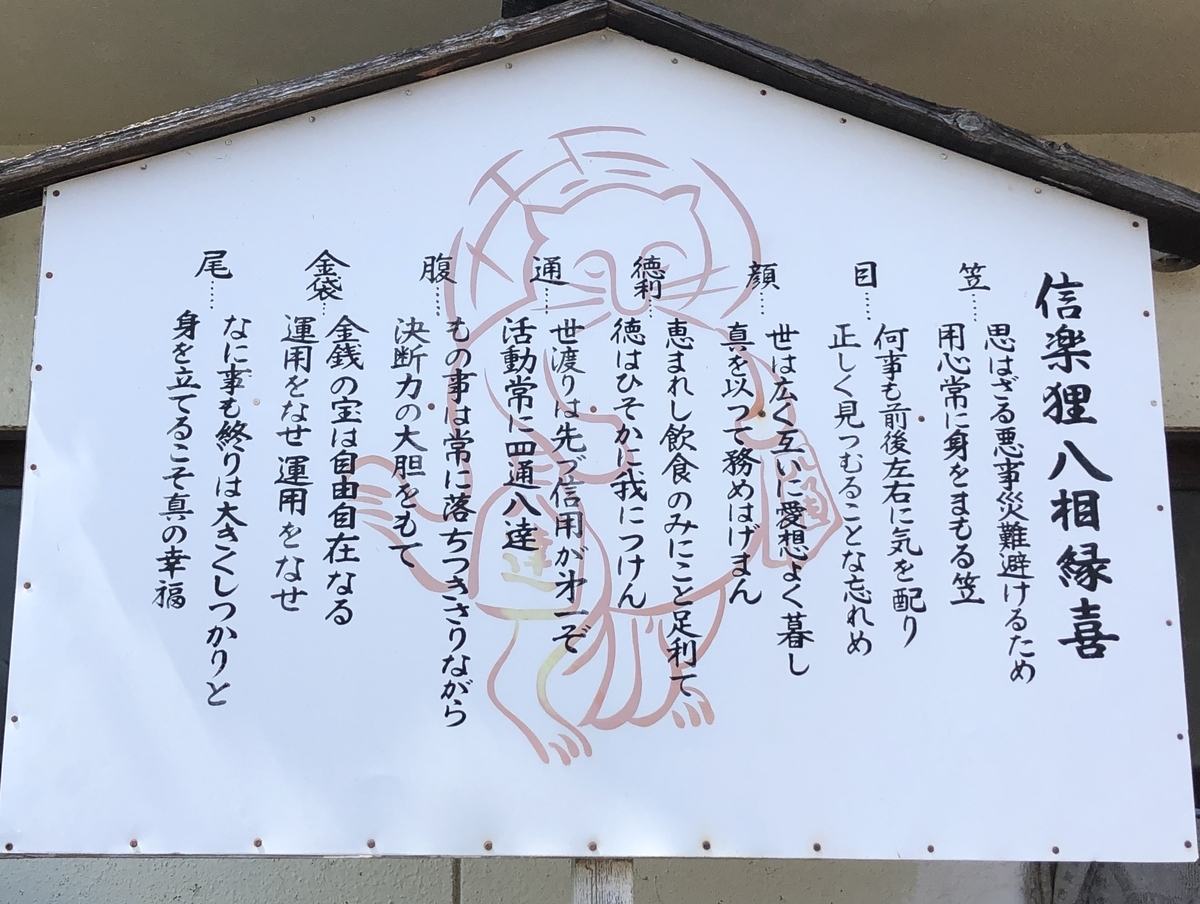 信楽狸八相縁喜
笠……
思はざる悪事災難避けるため
用心常に身をまもる笠
目……
何事も前後左右に気を配り
正しく見つむることな忘れめ
顔……
世は広く互いに愛想よく暮し
真を以って務めはげまん
徳利……
恵まれし飲食のみにこと足利て
徳はひそかに我につけん
通……
世渡りは先づ信用が㐧一ぞ
活動常に四通八達
腹……
もの事は常に落ちつきさりながら
決断力の大胆をもて
金袋
金銭の宝は自由自在なる
運用をなせ運用をなせ
尾……
なに事も終りは大きくしつかりと
身を立てるこそ真の幸福
通
達